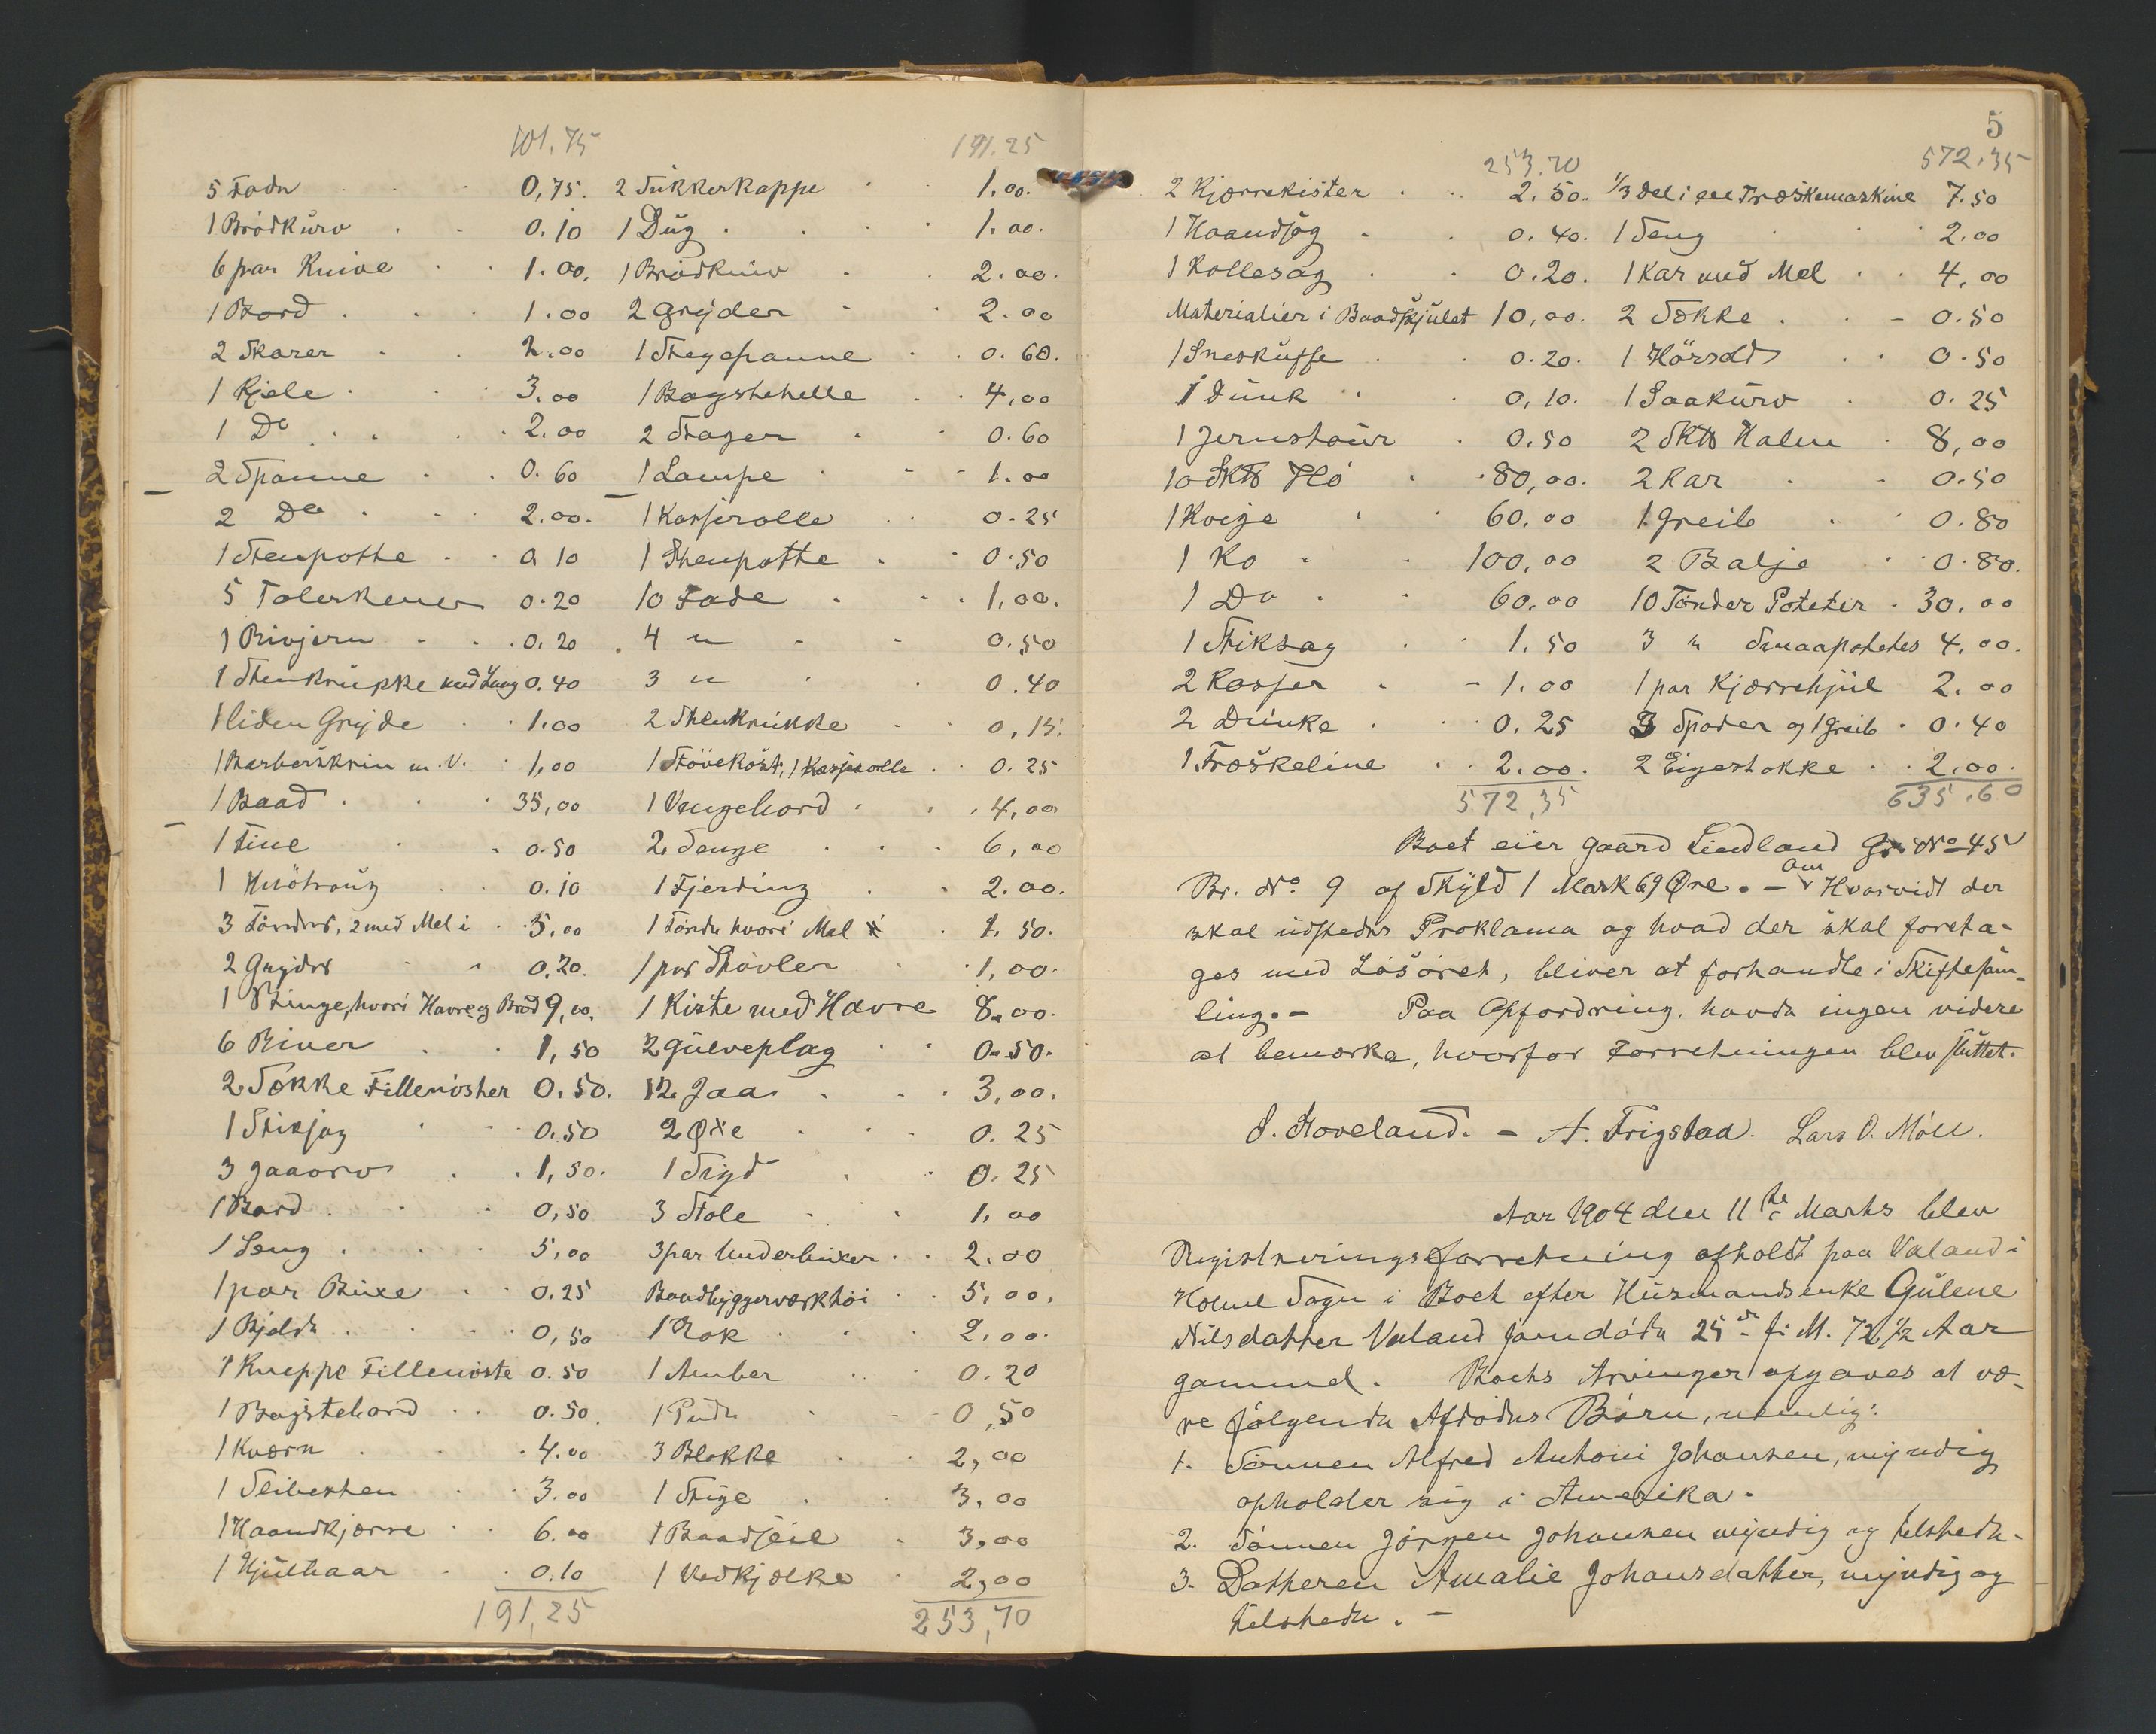 101.75
5 Fade 0,75.
1 Brödkurv 0.10
6 par Knive 1.00.
1 Bord 1.00
2 Skarer 2.00
1 Kjele 3.00
1 Do 2.00
2 Spanne 0.60
2 Do 2.00.
1 Stenpotte 0.10
5 Talerkener 0.20
1 Rivjern 0.20
1 Stenkrukke med Laag 0.40
1 liden Gryde 1.00
1 Barberskrin m.V. 1,00
1 Baad 35,00
1 Tine 0.50
1 Knötraug 0.10
3 Tönder, 2 med Mel i 5,00
2 Gryder 0,20.
1 Binge, hvori Havre og Bröd 9,00.
6 River 1,50
2 Sække Fillenöster 0.50.
1 Stiksag 0.50
3 Jaaorv 1,50.
1 Bord 0,50
1 Seng 5,00
1 par Buxe 0.25
1 Bjelde 0,50
1 Kneppe Fillenöste 0.50
1 Bagstebord 0.50.
1 Kværn 4.00
1 Slibesten 3.00
1 Haandkjærre 6.00
1 Hjulbaar 0.10
191,25
191.25
2 Sukkerkoppe 1.00.
1 Dug 1.00.
1 Brödkniv 2.00.
2 Gryder 2.00
1 Stegepanne 0.60.
1 Bagstehelle 4,00
2 Stager 0.60
1 Lampe 1.00
1 Kasserolle 0.25
1 Stenpotte 0.50
10 Fade 1,00.
4 " 0.50
3 " 0.40
2 Stenkrukke 0,15.
1 Stövekost, 1 Kasserolle 0.25
1 Vengebord 4,00
2 Senge 6,00
1 Fjerding 2.00.
1 Tönde hvori Mel 1.50.
1 par Stövler 1,00.
1 Kiste med Havre 8.00.
2 Gulveplag 0.50.
12 Jaa 3,00.
2 Øxe 0.25
1 Sigd 0.25
3 Stole 1.00
3 par Underbuxer 2.00
Baadbyggerværktöi 5,00.
1 Rok 2,00.
1 Amber 0.20
1 Pude 0,50
3 Blokke 2,00
1 Stige 3,00
1 Baadseil 3,00
1 Vedkjælke 2,00
253,70
5
253.70
2 Kjærrekister 2.50.
1 Haandsag 0.40.
1 Kollesag 0.20.
Materialier i Baadskjulet 10,00.
1 Sneskuffe 0.20.
1 Dunk 0,10.
1 Jernstaur 0.50
10 Sktb Hö 80,00.
1 Kvige 60.00
1 Ko 100,00
1 Do 60,00
1 Stiksag 1.50
2 Kasser 1.00
2 Dunke 0.25
1 Træskeline 2.00.
572,35
572.35
1/3 Del i en Træskemaskine 7.50
1 Seng 2.00
1 Kar med Mel 4,00
2 Sække 0.50
1 Hörsold 0.50
1 Saakurv 0.25
2 Sktb Halm 8,00
2 Kar 0.50
1 Greib 0.80
2 Balje 0.80.
10 Tönder Poteter 30.00
3 " Smaapotetes 4.00.
1 par Kjærrehjul 2.00
3 Spader og 1 Greib 0.40
2 Eigestokke 2,00.
635.60
Boet eier Gaard Lindland Gr. No 45
Br. No 9 af Skyld 1 Mark 69 Øre. – Om Hvorvidt der
skal udstedes Proklama og hvad der skal foreta-
ges med Lösöret, bliver at forhandle i Skiftesam-
ling. – Paa Opfordring, havde ingen videre
at bemærke, hvorfor Forretningen blev sluttet.
S. Hoveland. – A. Frigstad. Lars O. Möll.
Aar 1904 den 11te Marts blev
Registreringsforretning afholdt paa Valand i
Holme Sogn i Boet efter Husmandsenke Gulene
Nilsdatter Valand som döde 25de f: M. 72 1/2 Aar
gammel. Boets Arvinger opgaves at væ-
re fölgende Afdödes Börn, nemlig:
1. Sönnen Alfred Antoni Johansen, myndig
opholder sig i Amerika.
2. Sönnen Jörgen Johansen myndig og tilstede.
3. Datteren Amalie Johansdatter, myndig og
tilstede. –